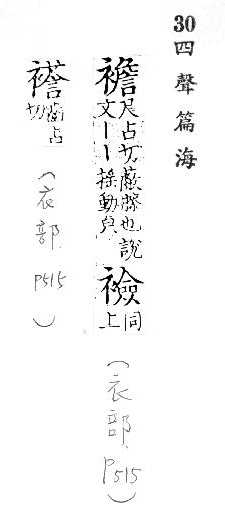 30四聲篇海
襜尺占切蔽膝也說
文丨丨搖動皃
襝同
上
（衣部P515）
占
切
（衣部P515）